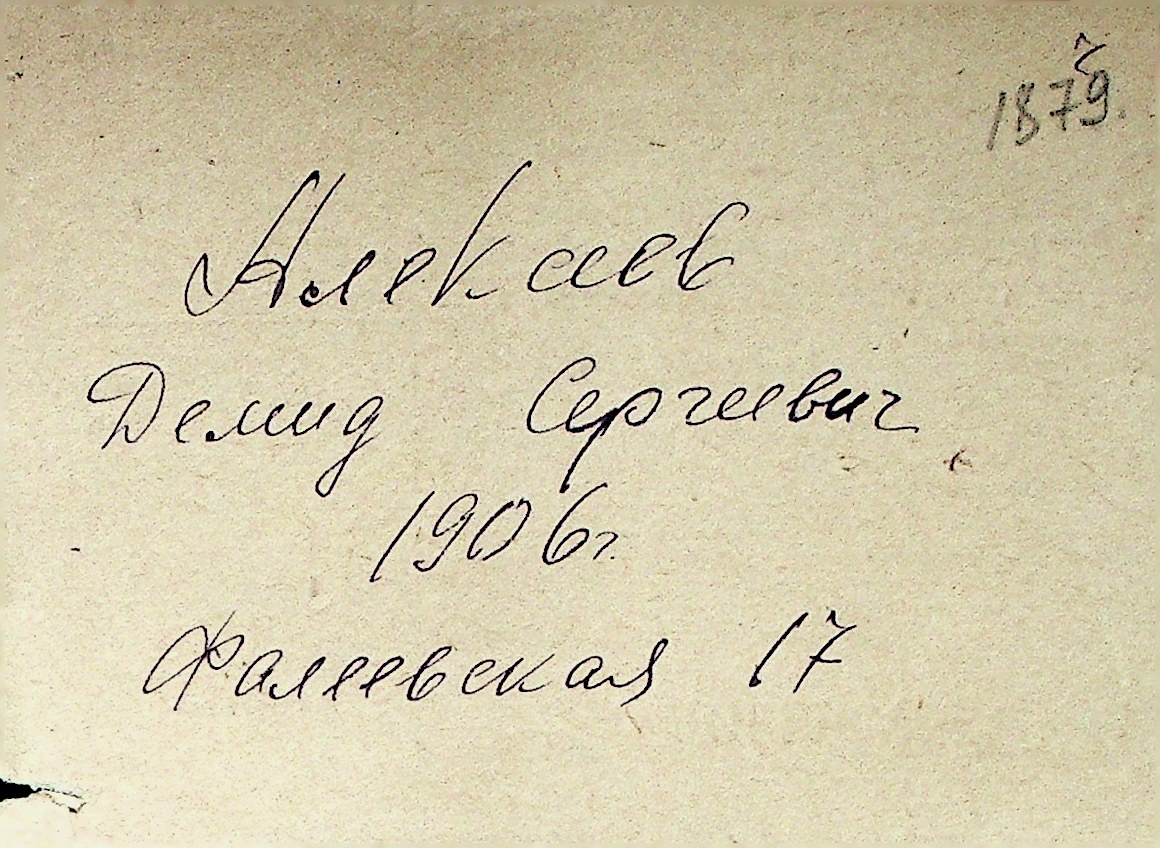 1879.
Алекаев
Демид Сергеевич
1906г.
Фалеевская 17